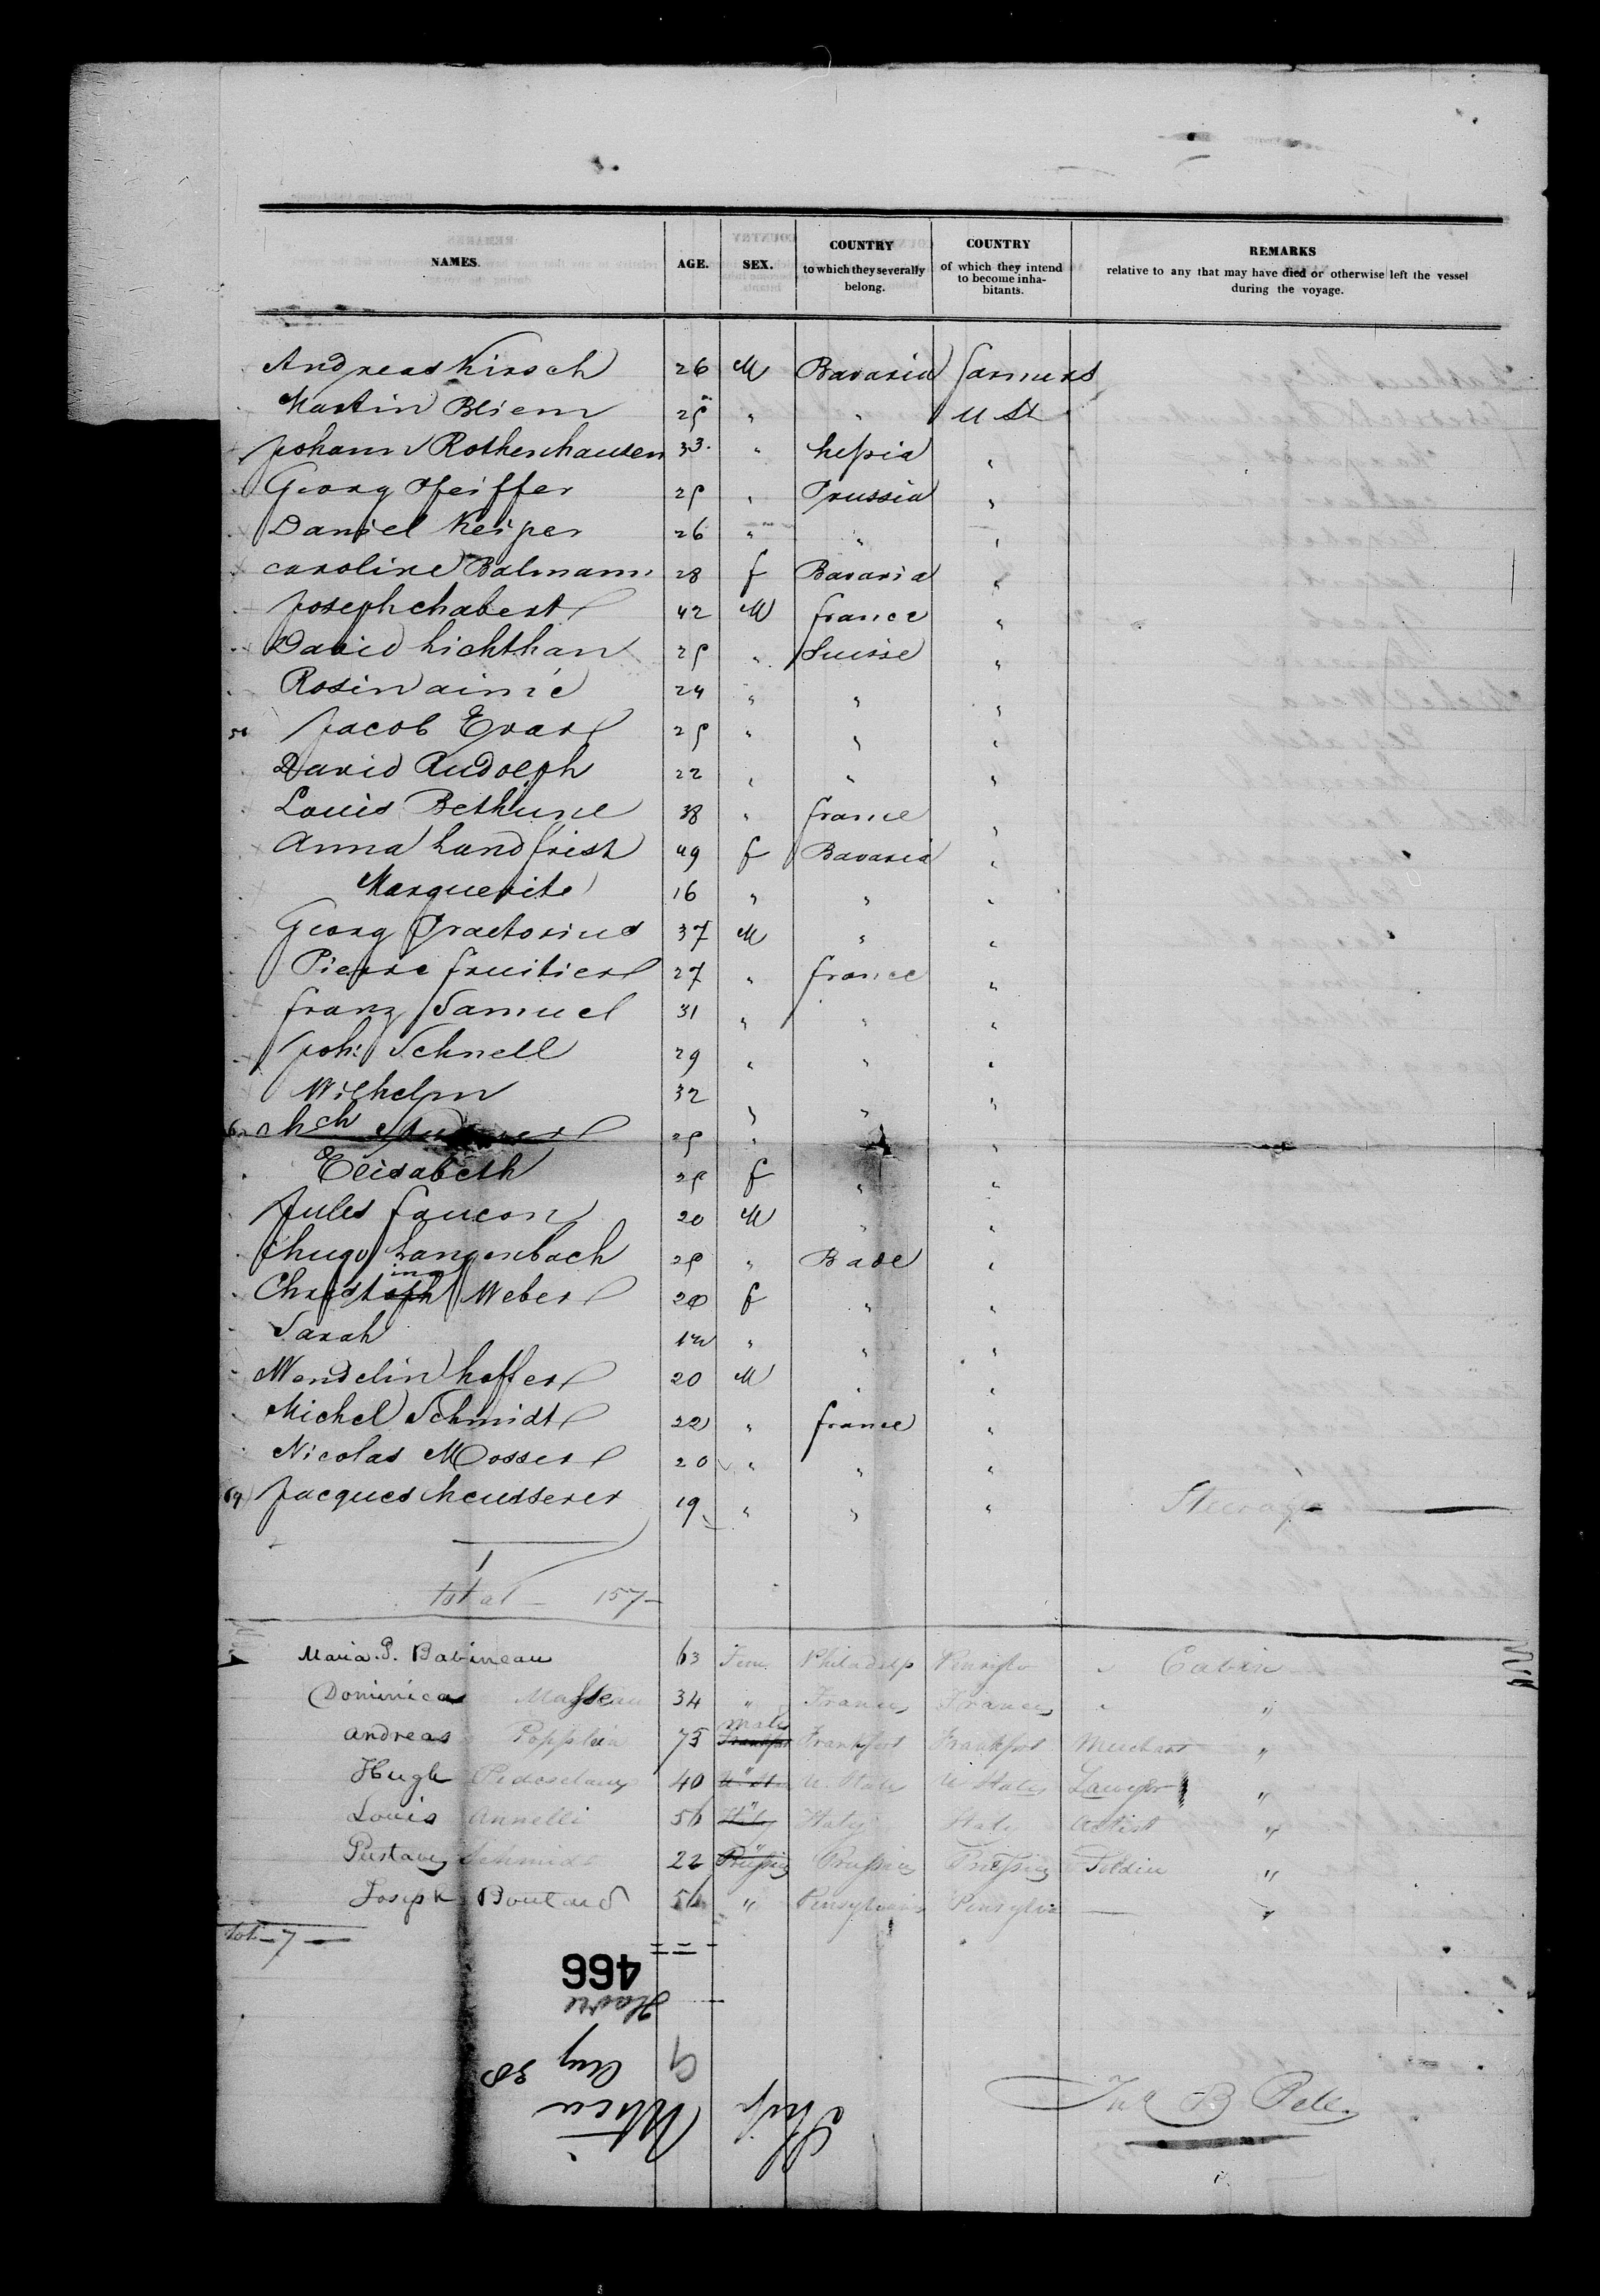 NAMES. AGE. SEX. COUNTRY to which they severally belong. COUNTRY of which they intend to become inhabitants. REMARKS relative to any that may have died or otherwise left the vessel during the voyage.
Andreas Kirsch 26 M Bavaria farmers
Martin Bliem 25 " " U St
Johann Rothenhausen 33 " hessia "
Georg Pfeiffer 25 " Prussia "
Daniel Keiper 26 " " "
caroline Balmann 28 f Bavaria "
Joseph chabert 42 M france "
David Lichthan 25 " Suisse "
Rosin aimé 24 " " "
Jacob Evar 25 " " "
David Rudolph 22 " " "
Louis Bethune 38 " france "
Anna Landfrish 49 f Bavaria "
Marguerite 16 " " "
Georg Praetorius 37 M " "
Pierre fruitier 27 " france "
franz Samuel 31 " " "
Joh: Schnell 29 " " "
Wilhelm 32 " " "
25 " " "
Elisabeth 25 f " "
Jules faucon 20 M " "
hugo Langenbach 25 " Bade "
Christina Weber 20 f " "
Sarah " " "
Wendelin hoffer 20 M " "
Michel Schmidt 22 " france "
Nicolas Mosser 20 " " "
Jacques heusserer 19 " " " Steerage
total 157
Maria P. Babineau 63 Fem. Philadelp Pensylv " Cabin
Dominica 34 " France France " "
Andreas Popplein 75 male Frankfort Frankfort Merchant "
Hugh 40 " U. States U States Lawyer "
Louis Annelli 56 " Italy Italy Artist "
Gustave Schmidt 22 " Prussia Prussia Soldier "
Joseph Boutard 56 " Pensylvania Pensylva — "
tot - 7 -
466
Havre
9 Aug 30
Ship Utica
B Pell